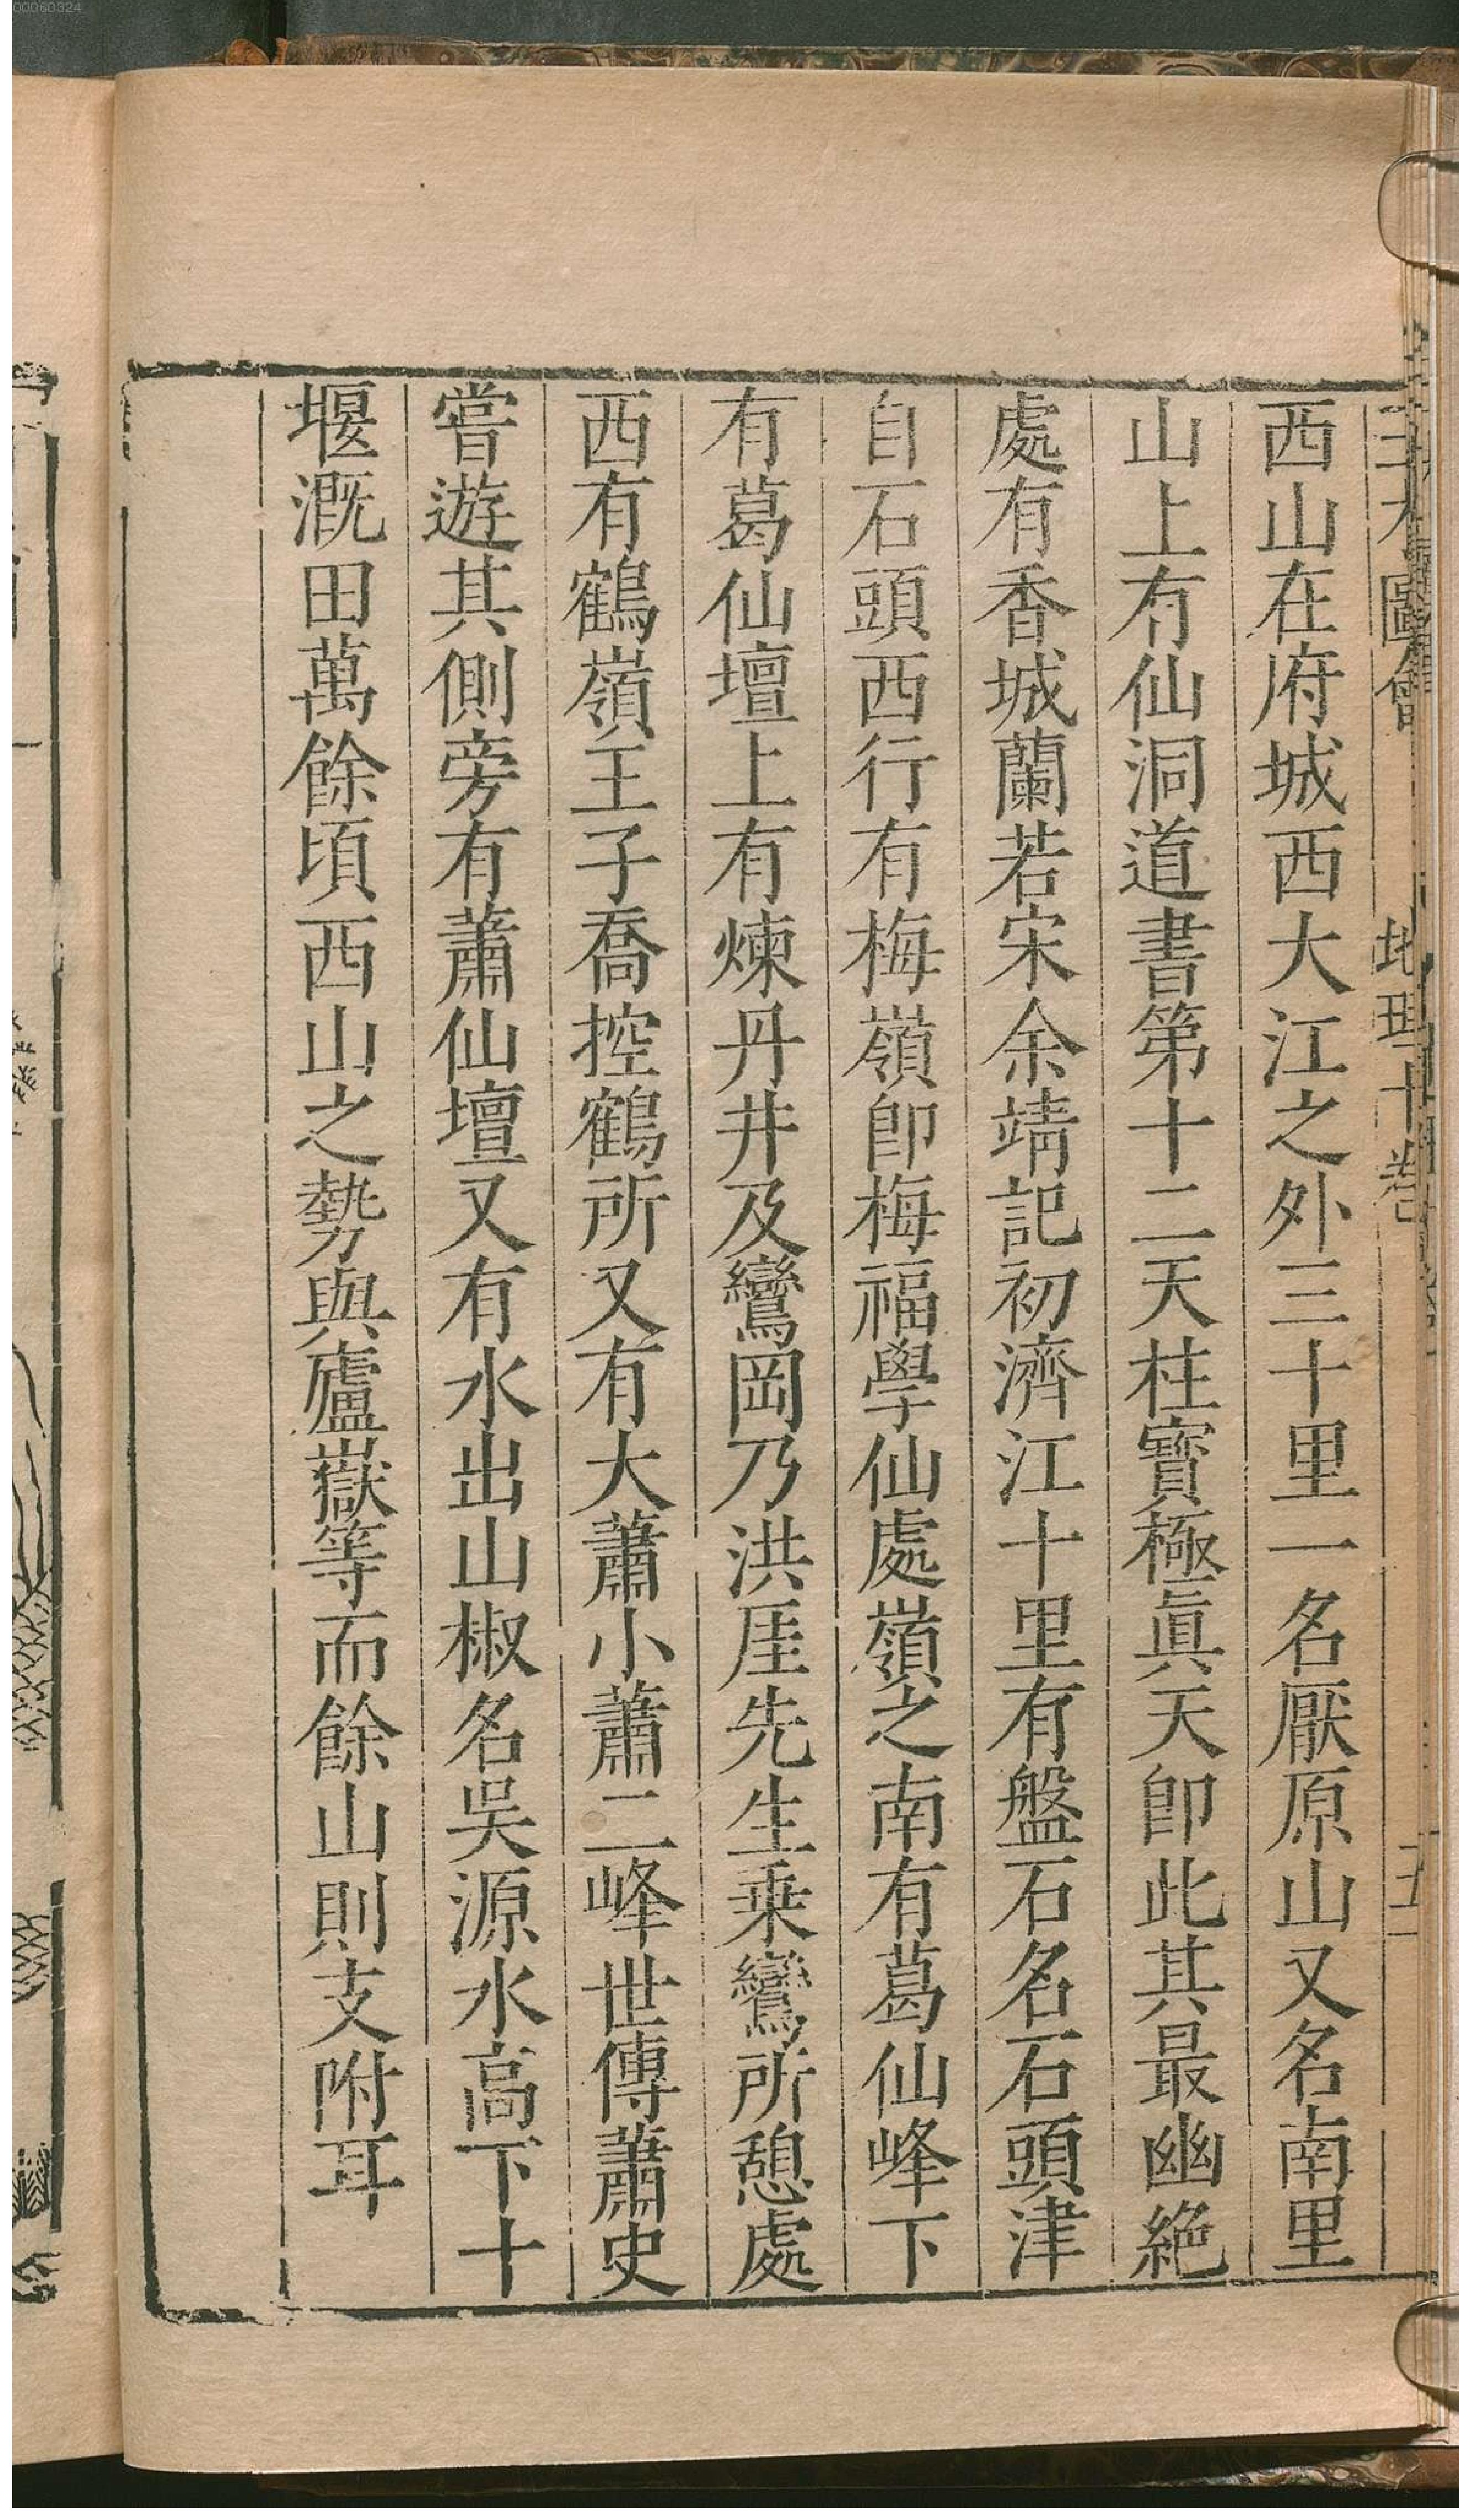 00060324
三才圖會 地理十卷
西山在府城西大江之外三十里一名厭原山又名南里
山上有仙洞道書第十二天柱寳極眞天卽此其最幽絕
處有香城蘭若宋余靖記初濟江十里有盤石名石頭津
自石頭西行有梅嶺卽梅福學仙處嶺之南有葛仙峰下
有葛仙壇上有煉丹井及鸞岡乃洪厓先生乗鸞所憩處
西有鶴嶺王子喬控鶴所又有大蕭小蕭二峰世傳蕭史
嘗遊其側旁有蕭仙壇又有水出山椒名吳源水高下十
堰漑田萬餘頃西山之勢與廬嶽等而餘山則支附耳